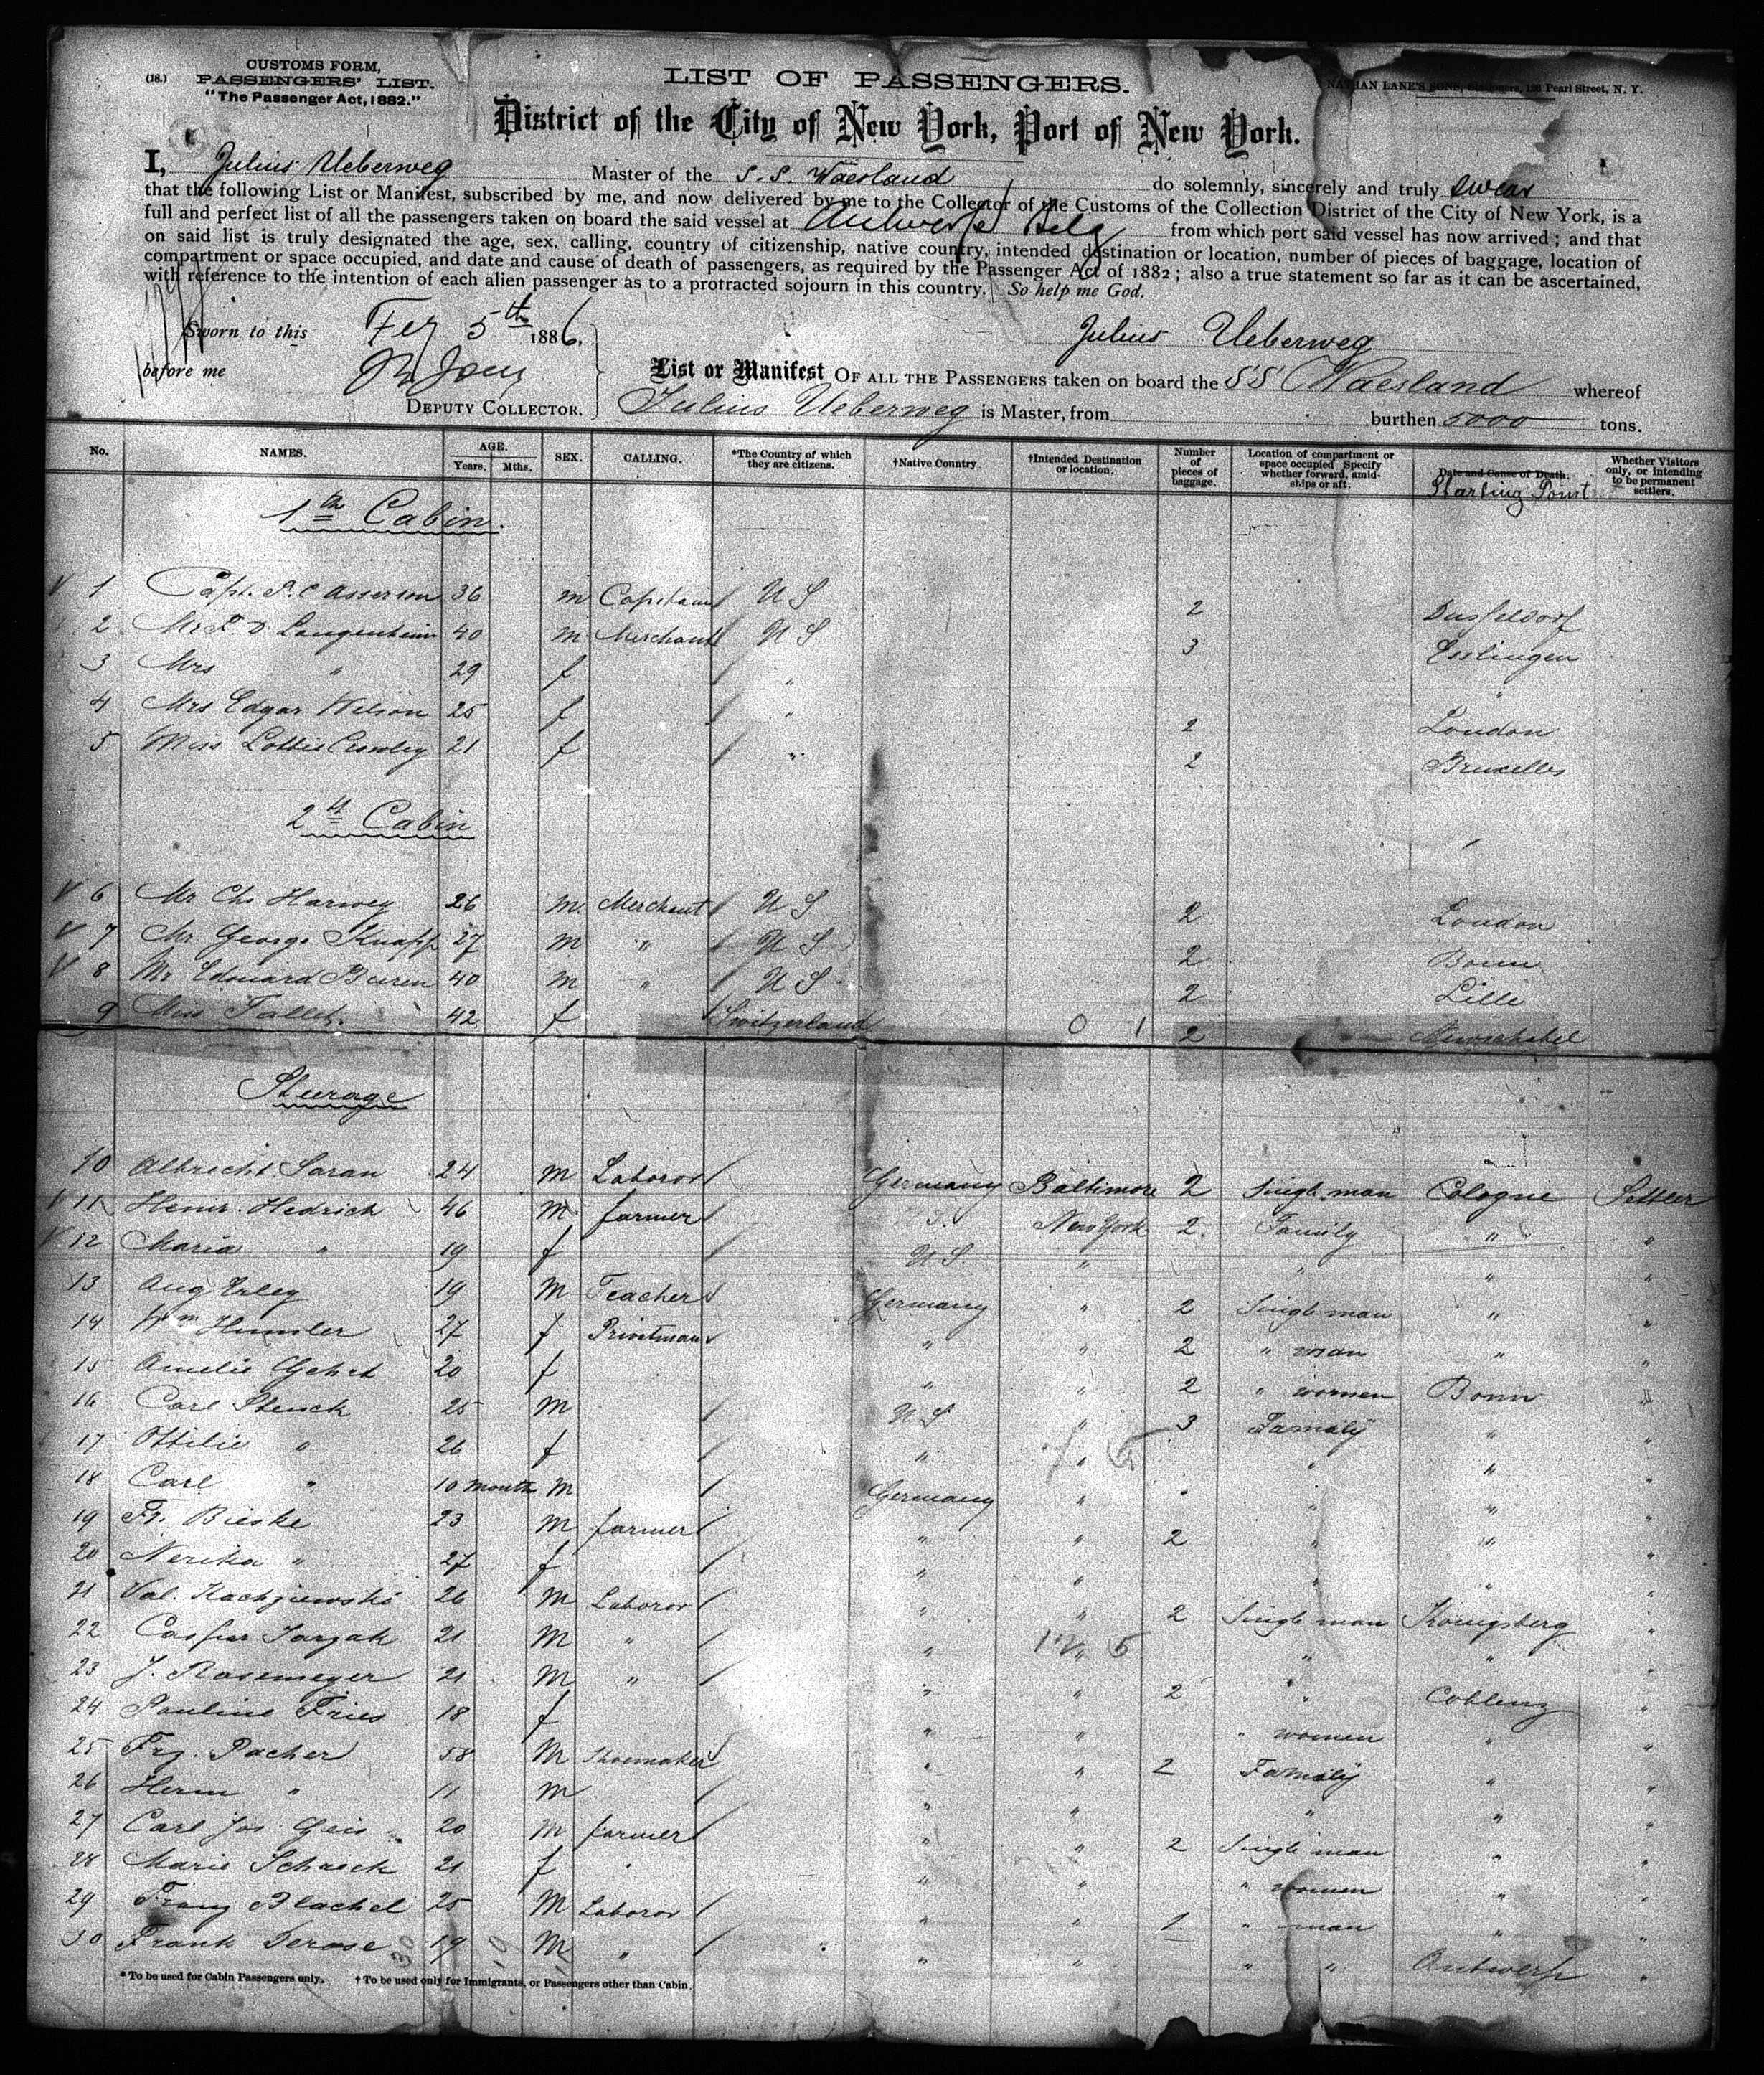 (18.)
CUSTOMS FORM,
PASSENGERS' LIST.
"The Passenger Act, 1882."
LIST OF PASSENGERS.
NATHAN LANE'S SONS, Stationers, Pearl Street, N. Y.
District of the City of New York, Port of New York.
I, Julius Ueberweg Master of the S.S. Waesland do solemnly, sincerely and truly swear
that the following List or Manifest, subscribed by me, and now delivered by me to the Collector of the Customs of the Collection District of the City of New York, is a
full and perfect list of all the passengers taken on board the said vessel at Antwerp Belg from which port said vessel has now arrived; and that
on said list is truly designated the age, sex, calling, country of citizenship, native country, intended destination or location, number of pieces of baggage, location of
compartment or space occupied, and date and cause of death of passengers, as required by the Passenger Act of 1882; also a true statement so far as it can be ascertained,
with reference to the intention of each alien passenger as to a protracted sojourn in this country. So help me God.
Sworn to this 5th 1886. Julius Ueberweg
before me
List or Manifest OF ALL THE PASSENGERS taken on board the SS Waesland whereof
DEPUTY COLLECTOR. Julius Ueberweg is Master, from burthen 5000 tons.
No. NAMES. AGE. Years. Mths. SEX. CALLING. *The Country of which they are citizens. †Native Country †Intended Destination or location. Number of pieces of baggage. Location of compartment or space occupied Specify whether forward, amidships or aft. Date and Cause of Death. Starting Point Whether Visitors only, or intending to be permanent settlers.
1th Cabin.
1 Capt. P. C Asserson 36 m U S 2 Dusseldorf
2 Mr F. D Langenheim 40 m Merchant U S 3 Esslingen
3 Mrs " 29 f " "
4 Mrs Edgar Wilson 25 f " 2 London
5 Miss Lottie Crowley 21 f " 2 Bruxelles
2d Cabin
6 Mr Chs Harvey 26 m. Merchant U S 2 London
7 Mr George Knapp 27 m " U S 2 Bonn
8 Mr Edouard Buren 40 m " U S 2 Lille
9 Miss Tallet. 42 f Switzerland 0 1 2
Steerage
10 Albrecht Saran 24 M Laboror Germany Baltimore 2 Single man Cologne Settler
11 Heinr. Hedrich 46 M. farmer U S. New York 2. Family " "
12 Maria " 19 f U S. " " " "
13 Aug Erley 19 M Teacher Germany " 2 Single man " "
14 Wm 27 f " " 2 " man " "
15 Amelie 20 f " " 2 " women Bonn "
16 Carl Schenck 25 M U S " 3 Family " "
17 Ottilie " 26 f " " " " "
18 Carl " 10 month M Germany " " " " "
19 Fr. Bieske 23 M farmer " " 2 " " "
20 " 27 f " " " " "
21 Val. 26 M Laboror " " 2 Single man Konigsberg "
22 Casper 21 M " " " " " "
23 J. Rosemeyer 21 M " " " 2 " Coblenz "
24 Pauline Fries 18 f " " " women " "
25 Frz. Pacher 58 M Shoemaker " " 2 Family " "
26 Herm " 11 M " " " " "
27 Carl Jos. Geis 20 M farmer " " 2 Single man " "
28 Marie Schaeck 21 f " " " women " "
29 Franz Blachel 25 M Laboror " " 1 " man " "
30 Frank Derose 19 M " " " " " Antwerp "
*To be used for Cabin Passengers only. †To be used only for Immigrants, or Passengers other than Cabin.